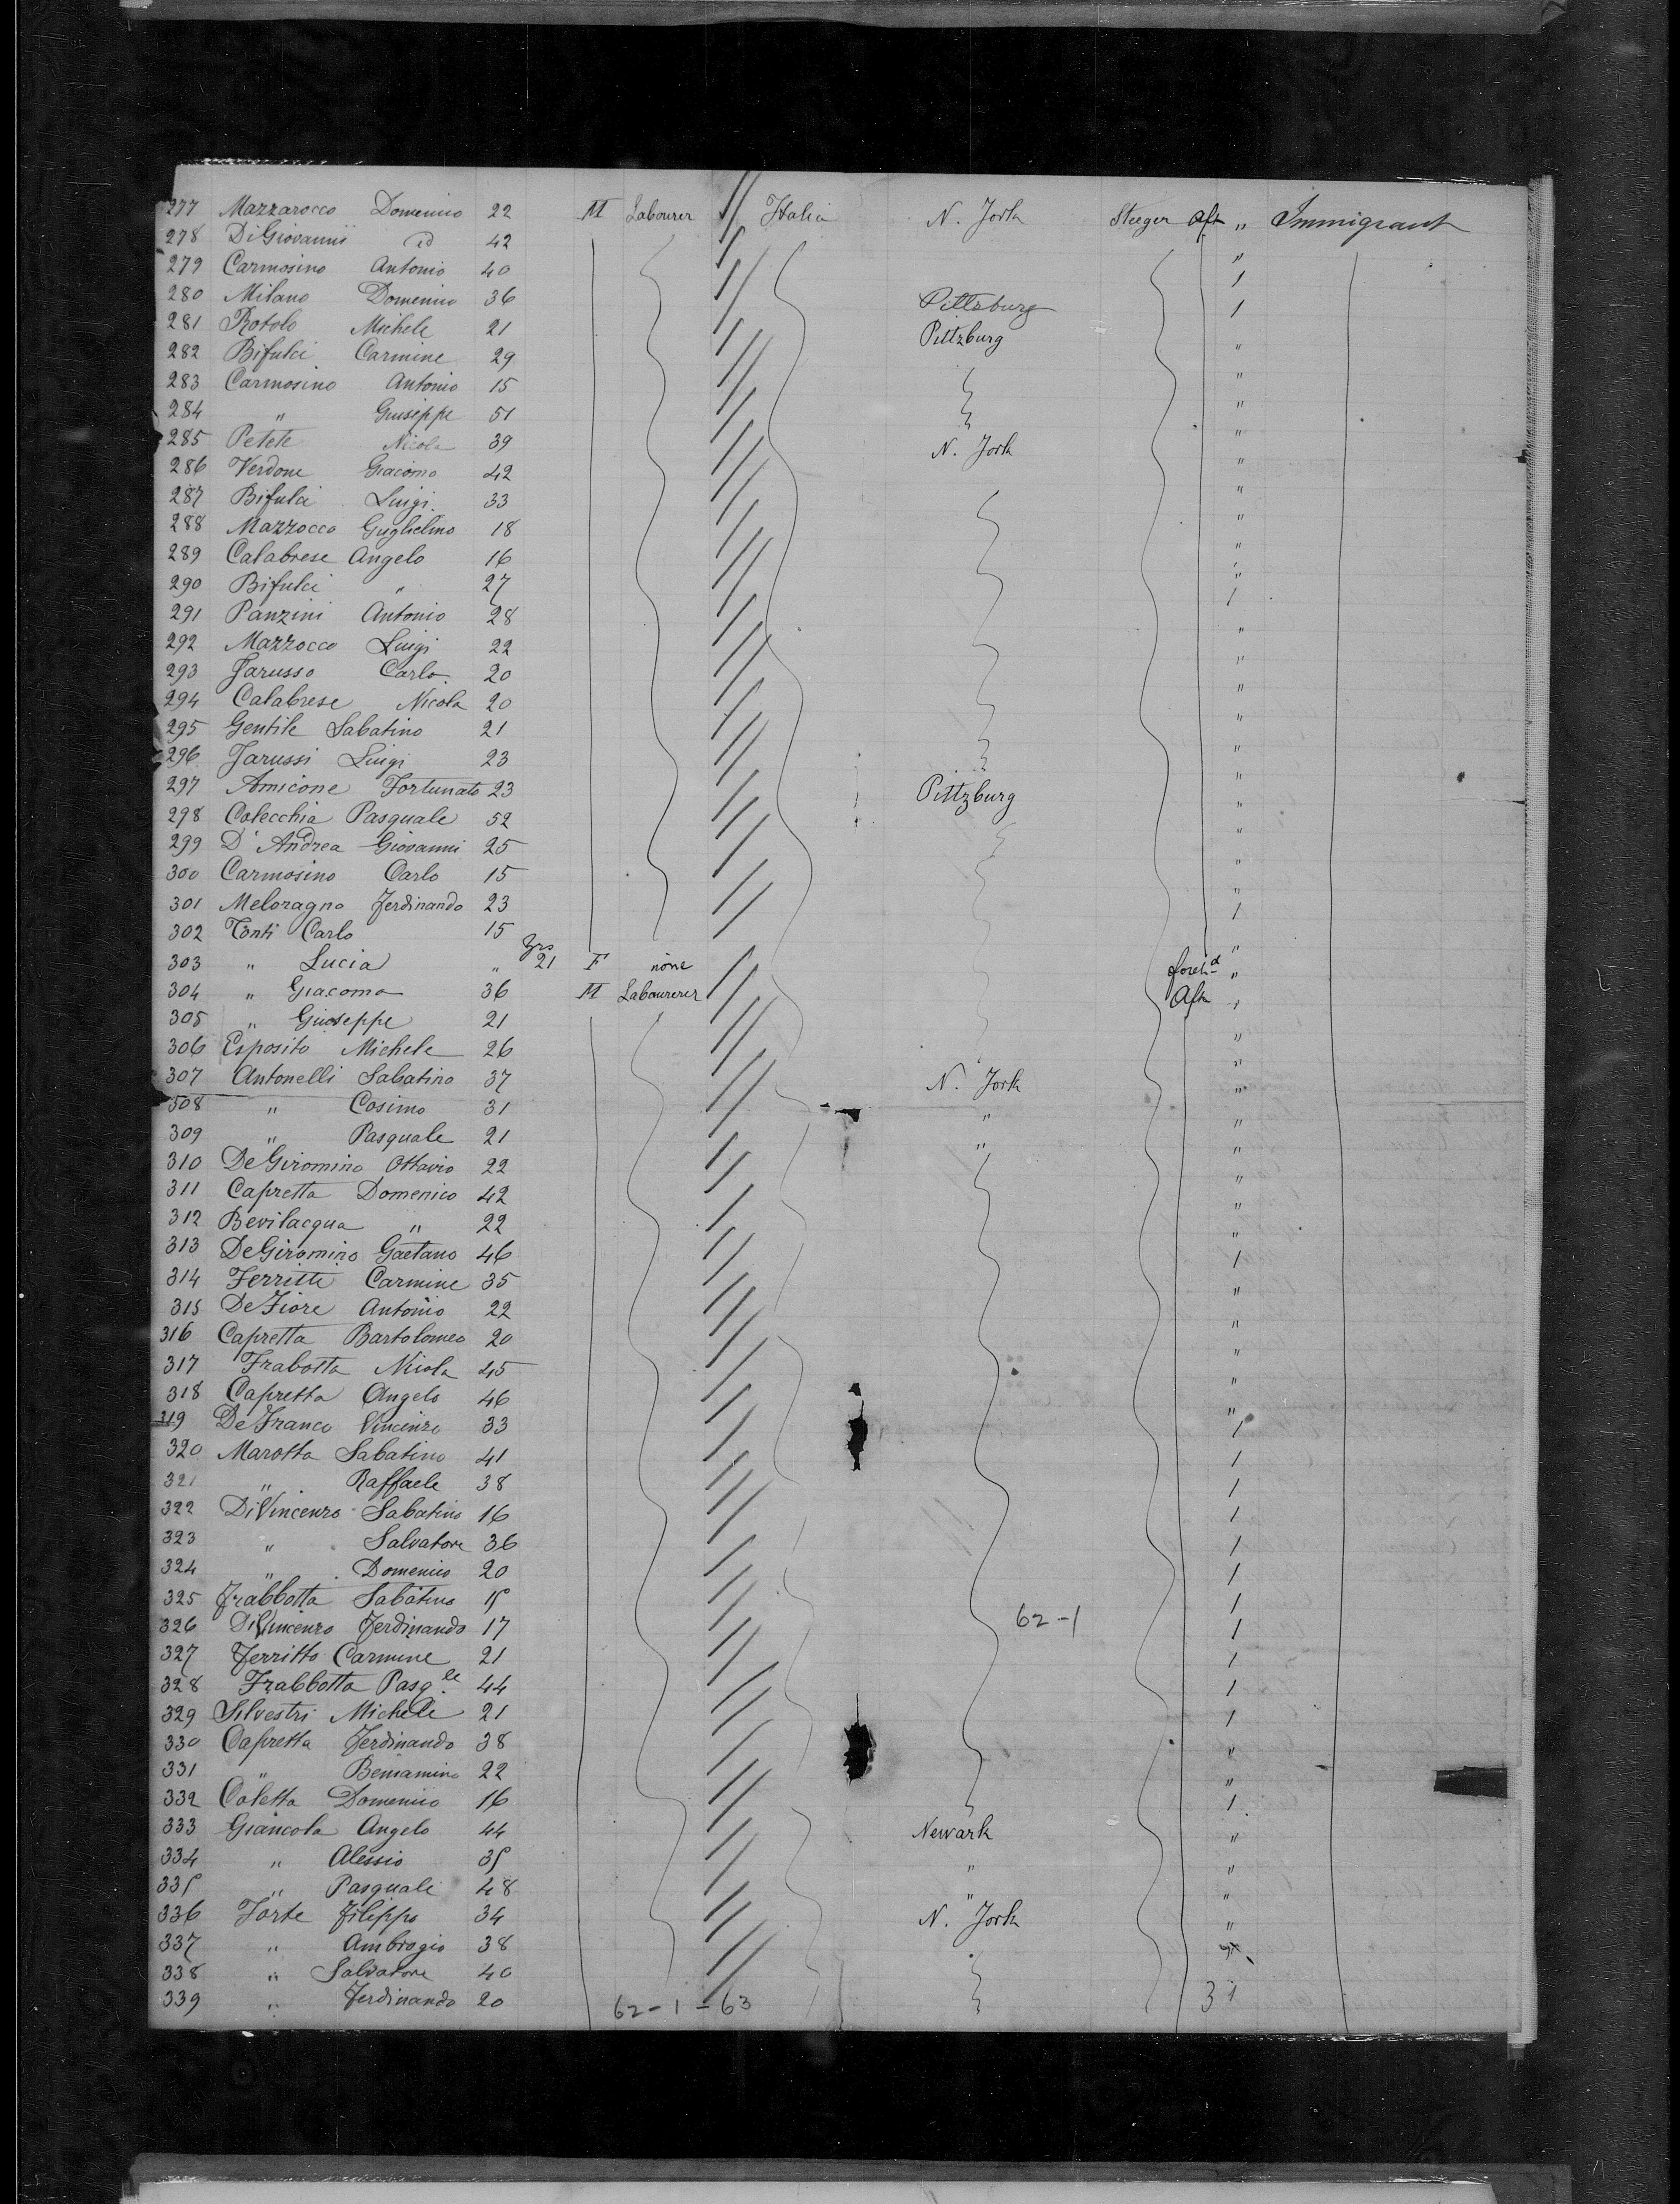 277 Mazzarocco Domenico 22 M Labourer Italia N. York Steeger Aft " Immigrant
278 DiGiovanni id 42 "
279 Carmosino Antonio 40 1
280 Milano Domenico 36 Pittzburg 1
281 Rotolo Michele 21 Pittzburg "
282 Bifulci Carmine 29 "
283 Carmosino Antonio 15 "
284 " Giuseppe 51 "
285 Petete Nicola 39 N. York "
286 Verdone Giacomo 42 "
287 Bifulci Luigi 33 "
288 Mazzocco Guglielmo 18 "
289 Calabrese Angelo 16 "
290 Bifulci " 27 1
291 Panzini Antonio 28 "
292 Mazzocco Luigi 22 "
293 Jarusso Carlo 20 "
294 Calabrese Nicola 20 "
295 Gentile Sabatino 21 "
296 Jarussi Luigi 23 "
297 Amicone Fortunato 23 Pittzburg "
298 Colecchia Pasquale 52 "
299 D'Andrea Giovanni 25 "
300 Carmosino Carlo 15 "
301 Meloragno Ferdinando 23 1
302 Tonti Carlo 15 "
303 " Lucia " 21 F none "
304 " Giacomo 36 M Labourerer Aft "
305 " Giuseppe 21 "
306 Esposito Michele 26 "
307 Antonelli Sabatino 37 N. York "
308 " Cosimo 31 " "
309 " Pasquale 21 " "
310 DeGiromino Ottavio 22 "
311 Capretta Domenico 42 "
312 Bevilacqua " 22 "
313 DeGiromino Gaetano 46 1
314 Ferritti Carmine 35 "
315 DeFiore Antonio 22 "
316 Capretta Bartolomeo 20 "
317 Frabotta Nicola 45 "
318 Capretta Angelo 46 "
319 DeFranco Vincenzo 33 1
320 Marotta Sabatino 41 1
321 " Raffaele 38 1
322 DiVincenzo Sabatino 16 1
323 " Salvatore 36 1
324 " Domenico 20 1
325 Frabbotta Sabatino 15 1
326 DiVincenzo Ferdinando 17 62-1 1
327 Ferritto Carmine 21 1
328 Frabbotta Pasq.le 44 1
329 Silvestri Michele 21 1
330 Capretta Ferdinando 38 "
331 " Beniamino 22 "
332 Coletta Domenico 16 1
333 Giancola Angelo 44 Newark "
334 " Alessio 35 " "
335 " Pasquale 48 " "
336 Forte Filippo 34 N. York "
337 " Ambrogio 38
338 " Salvatore 40
339 " Ferdinando 20 62-1-63 31